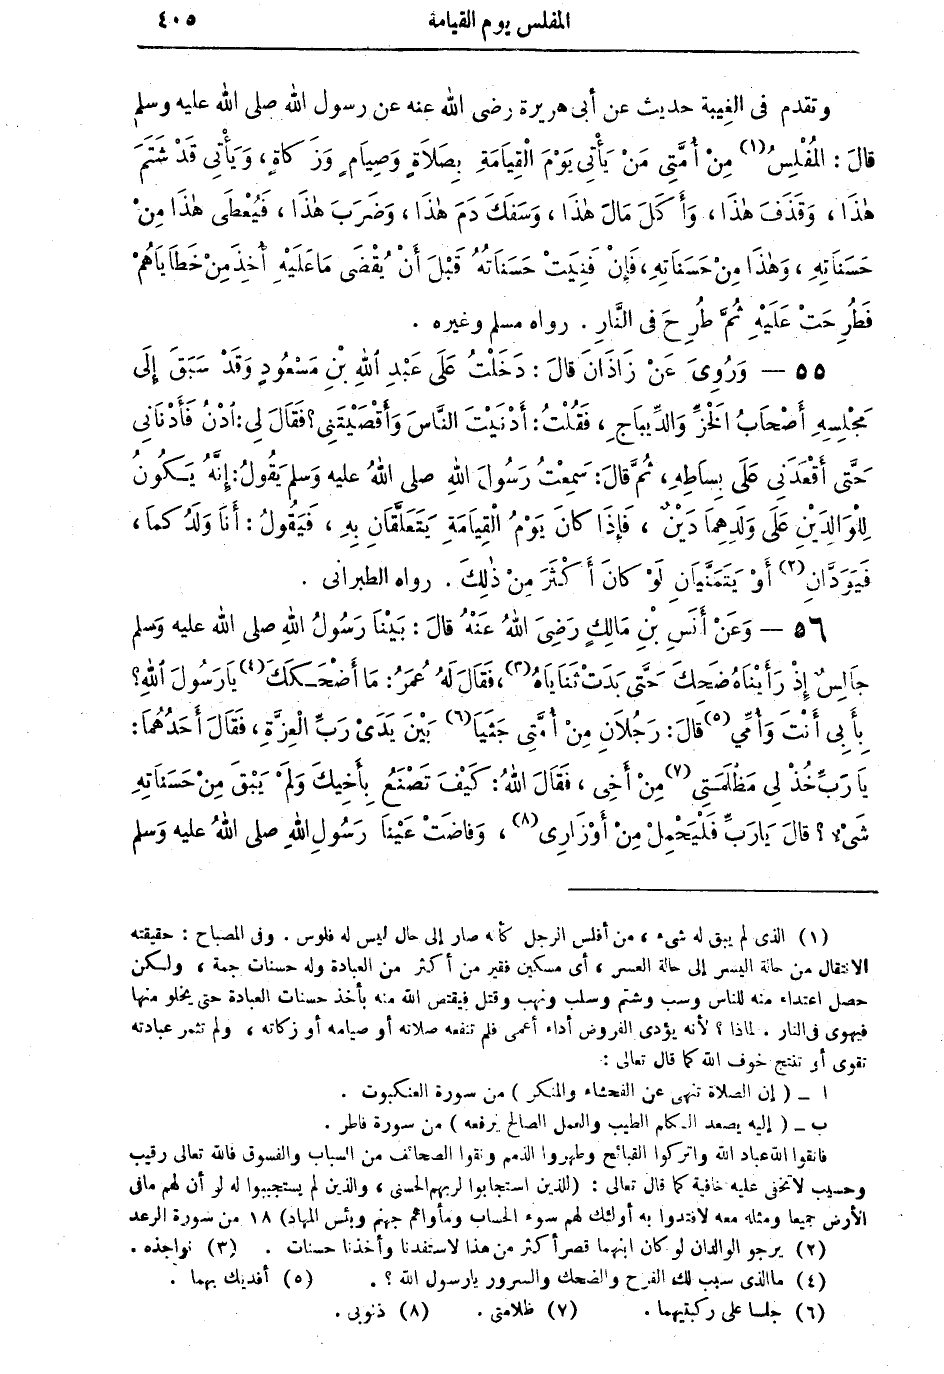 المفلس يوم القيامة ٤٠٥
وتقدم فى الغيبة حديث عن أبى هريرة رضى الله عنه عن رسول الله صلى الله عليه وسلم
قَالَ : الْمُفْلِسُ(١) مِنْ أُمَّتِى مَنْ يَأْتِى يَوْمَ الْقِيَامَةِ بِصَلَاةٍ وَصِيَامٍ وَزَكَاةٍ ، وَيَأْتِى قَدْ شَتَمَ
هٰذَا ، وَقَذَفَ هٰذَا ، وَأَكَلَ مَالَ هٰذَا ، وَسَفَكَ دَمَ هٰذَا ، وَضَرَبَ هٰذَا ، فَيُعْطَى هٰذَا مِنْ
حَسَنَاتِهِ ، وَهٰذَا مِنْ حَسَنَاتِهِ ، فَإِنْ فَنِيَتْ حَسَنَاتُهُ قَبْلَ أَنْ يُقْضَى مَاعَلَيْهِ أُخِذَ مِنْ خَطَايَاهُمْ
فَطُرِحَتْ عَلَيْهِ ثُمَّ طُرِحَ فى النَّارِ . رواه مسلم وغيره .
٥٥ — وَرُوِىَ عَنْ زَاذَانَ قَالَ : دَخَلْتُ عَلَى عَبْدِ اللهِ بْنِ مَسْعُودٍ وَقَدْ سَبَقَ إِلَى
مَجْلِسِهِ أَصْحَابُ الْخَزِّ وَالدِّيبَاجِ ، فَقُلْتُ : أَدْنَيْتَ النَّاسَ وَأَقْصَيْتَنِى ؟ فَقَالَ لِى : اُدْنُ فَأَدْنَانِى
حَتَّى أَقْعَدَنِى عَلَى بِسَاطِهِ ، ثُمَّ قَالَ : سَمِعْتُ رَسُولَ اللهِ صلى اللهُ عليه وسلم يَقُولُ : إِنَّهُ يَكُونُ
لِلْوَالِدَيْنِ عَلَى وَلَدِهِمَا دَيْنٌ ، فَإِذَا كَانَ يَوْمُ الْقِيَامَةِ يَتَعَلَّقَانِ بِهِ ، فَيَقُولُ : أَنَا وَلَدُكُمَا ،
فَيَوَدَّانِ(٢) أَوْ يَتَمَنَّيَانِ لَوْ كَانَ أَكْثَرَ مِنْ ذٰلِكَ . رواه الطبرانى .
٥٦ — وَعَنْ أَنَسِ بْنِ مَالِكٍ رَضِىَ اللهُ عَنْهُ قَالَ : بَيْنَا رَسُولُ اللهِ صلى الله عليه وَسلم
جَالِسٌ إِذْ رَأَيْنَاهُ ضَحِكَ حَتَّى بَدَتْ ثَنَايَاهُ(٣) ، فَقَالَ لَهُ عُمَرُ : مَا أَضْحَكَكَ(٤) يَارَسُولَ اللهِ ؟
بِأَبِى أَنْتَ وَأُمِّي(٥) قَالَ : رَجُلَانِ مِنْ أُمَّتِى جَثَيَا(٦) بَيْنَ يَدَىْ رَبِّ الْعِزَّةِ ، فَقَالَ أَحَدُهُمَا :
يَارَبِّ خُذْ لِى مَظْلَمَتِي(٧) مِنْ أَخِى ، فَقَالَ اللهُ : كَيْفَ تَصْنَعُ بِأَخِيكَ وَلَمْ يَبْقَ مِنْ حَسَنَاتِهِ
شَىْءٌ ؟ قَالَ يَارَبِّ فَلْيَحْمِلْ مِنْ أَوْزَارِى(٨) ، وَفَاضَتْ عَيْنَا رَسُولِ اللهِ صلى اللهُ عليه وسلم
(١) الذى لم يبق له شىء ، من أفلس الرجل كأنه صار إلى حال ليس له فلوس . وفى المصباح : حقيقته
الانتقال من حالة اليسر إلى حالة العسر ، أى مسكين فقير من أكثر من العبادة وله حسنات جمة ، ولكن
حصل اعتداء منه للناس وسب وشتم وسلب ونهب وقتل فيقتص الله منه بأخذ حسنات العبادة حتى يخلو منها
فيهوى فى النار . لماذا ؟ لأنه يؤدى الفروض أداء أعمى فلم تنفعه صلاته أو صيامه أو زكاته ، ولم تثمر عبادته
تقوى أو تنتج خوف الله كما قال تعالى :
ا ــ ( إن الصلاة تنهى عن الفحشاء والمنكر ) من سورة العنكبوت .
ب ــ ( إليه يصعد الكلم الطيب والعمل الصالح يرفعه ) من سورة فاطر .
فاتقوا الله عباد الله واتركوا القبائح وطهروا الذمم ونقوا الصحائف من السباب والفسوق فالله تعالى رقيب
وحسيب لاتخفى عليه خافية كما قال تعالى : (للذين استجابوا لربهم الحسنى ، والذين لم يستجيبوا له لو أن لهم مافى
الأرض جميعا ومثله معه لافتدوا به أولئك لهم سوء الحساب ومأواهم جهنم وبئس المهاد) ١٨ من سورة الرعد
(٢) يرجو الوالدان لو كان ابنهما قصر أكثر من هذا لاستفدنا وأخذنا حسنات . (٣) نواجذه .
(٤) ماالذى سبب لك الفرح والضحك والسرور يارسول الله ؟ . (٥) أفديك بهما .
(٦) جلسا على ركبتيهما . (٧) ظلامتى . (٨) ذنوبى .